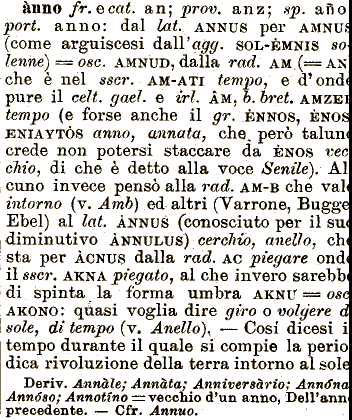 ànno fr. e cat. an; prov. anz; sp. año
port. anno: dal lat. ANNUS per AMNUS
(come arguiscesi dall'agg. SOL-ÈMNIS so
lenne) = osc. AMNUD, dalla rad. AM (= AN
che è nel sscr. AM-ATI tempo, e d'ond
pure il celt. gael. e irl. ÂM, b. bret. AMZEI
tempo (e forse anche il gr. ÈNNOS, ÈNOS
ENIAYTÒS anno, annata, che però talun
crede non potersi staccare da ÈNOS vec
chio, di che è detto alla voce Senile). Al
cuno invece pensò alla rad. AM-B che val
intorno (v. Amb) ed altri (Varrone, Bugge
Ebel) al lat. ÀNNUS (conosciuto per il su
diminutivo ÀNNULUS) cerchio, anello, che
sta per ÀCNUS dalla rad. AC piegare ond
il sscr. AKNA piegato, al che invero sarebb
di spinta la forma umbra AKNU = osc
AKONO: quasi voglia dire giro o volgere d
sole, di tempo (v. Anello). — Cosí dicesi i
tempo durante il quale si compie la perio
dica rivoluzione della terra intorno al sole
Deriv. Annàle; Annàta; Anniversàrio; Annóna
Annóso; Annotíno = vecchio d'un anno, Dell'ann
precedente. — Cfr. Annuo.